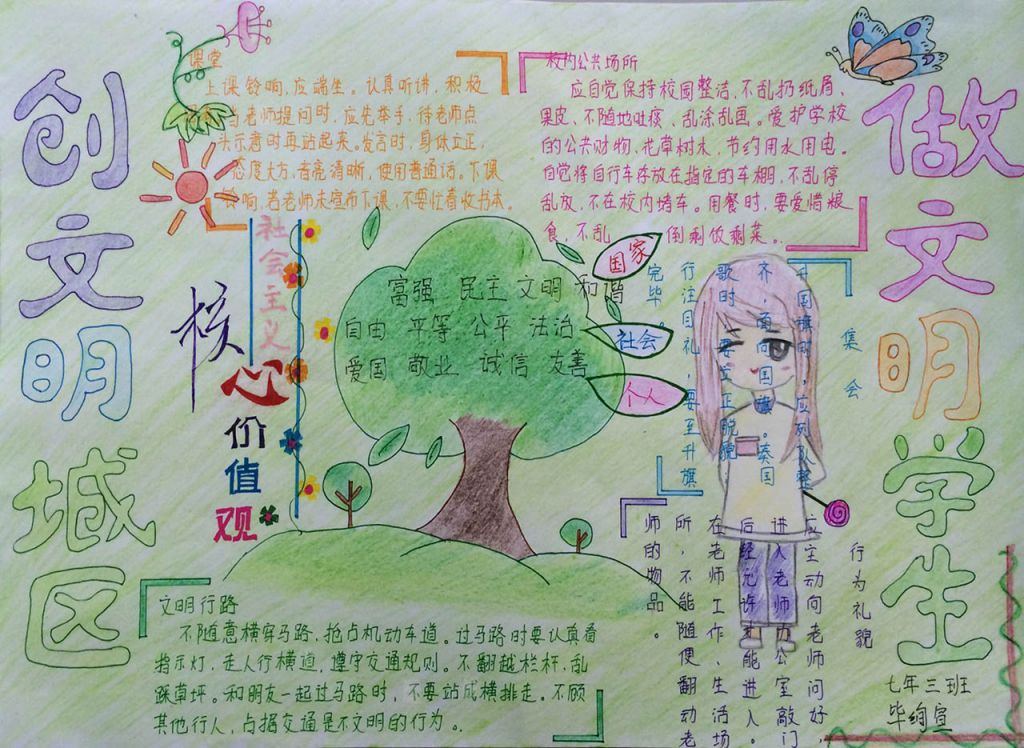 创文明城区
做文明学生
课堂
上课铃响,应端坐。认真听讲,积极
当老师提问时,应先举手,待老师点
头示意时再站起来。发言时,身体立正,
态度大方,音亮清晰,使用普通话。下课
铃响,若老师未宣布下课,不要忙着收书本。
校内公共场所
应自觉保持校园整洁,不乱扔纸屑、
果皮、不随地吐痰、乱涂乱画。爱护学校
的公共财物、花草树木,节约用水用电。
自觉将自行车存放在指定的车棚,不乱停
乱放,不在校内堵车。用餐时,要爱惜粮
食,不乱 倒剩饭剩菜。
社会主义
核心价值观
富强 民主 文明 和谐
自由 平等 公平 法治
爱国 敬业 诚信 友善
国家
社会
个人
集会
升国旗时,应列队整
齐,面向国旗。奏国
歌时,要立正脱帽
行注目礼,要至升旗
完毕。
行为礼貌
应主动向老师问好,
进入老师办公室敲门
后经允许才能进入。
在老师工作、生活场
所,不能随便翻动老
师的物品。
文明行路
不随意横穿马路,抢占机动车道。过马路时要认真看
指示灯,走人行横道,遵守交通规则。不翻越栏杆,乱
踩草坪。和朋友一起过马路时,不要站成横排走。不顾
其他行人,占据交通是不文明的行为。
七年三班
毕绚宣